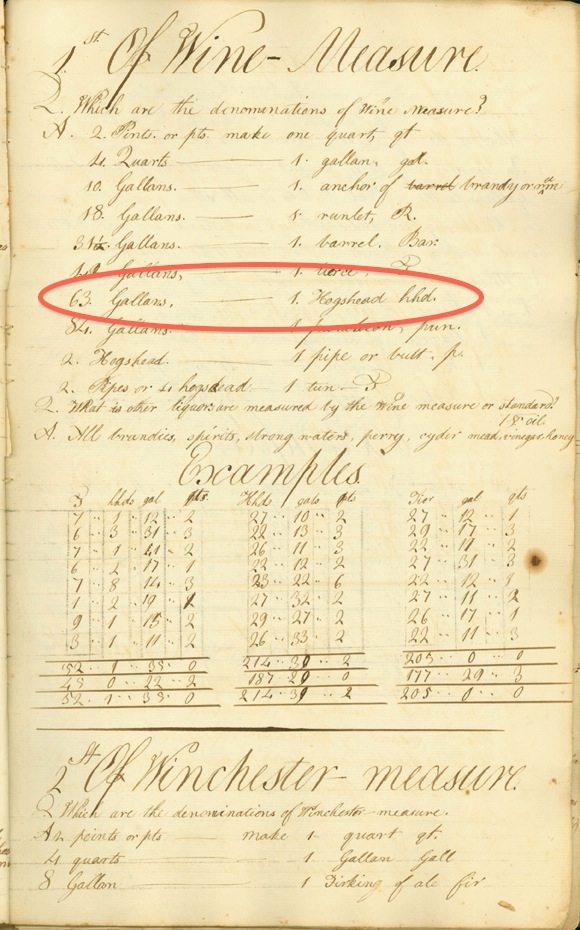 1st Of Wine-Measure.
Q. Which are the denominations of Wine Measure?
A. 2. Pints. or pts. make one quart, qt
4. Quarts 1. gallan, gal.
10. Gallans. 1. anchor of barrel brandy or rum
18. Gallans. 1. runlet, R.
31½ Gallans. 1. barrel. Bar.
42 Gallans, 1 tierce,
63. Gallans, 1. Hogshead hhd.
84. Gallans. 1 puncheon, pun.
2. Hogshead. 1 pipe or butt. p.
2. Pipes or 4 hogshead 1 tun T
Q. What is other liquors are measured by the Wine measure or standard?
A. All brandies, spirits, strong waters, perry, cyder mead, vinegar honey & oil.
Examples.
T hhds gal pts Hhds gals pts Tier gal qts
7 1 12 2 27 10 2 27 12 1
6 3 31 3 22 13 3 29 17 3
7 1 41 2 26 11 3 22 11 2
6 2 17 1 22 12 2 27 31 3
7 8 14 3 23 22 6 22 12 1
1 2 19 1 27 32 2 27 11 2
9 1 18 2 29 27 2 26 17 1
3 1 11 2 26 33 2 22 11 3
52 1 35 0 214 30 2 205 0 0
45 0 22 2 187 20 0 177 29 3
52 1 35 0 214 30 2 205 0 0
2st Of Winchester measure.
Q Which are the denominations of Winchester-measure.
A 2 points or pts make 1 quart qt.
4 quarts 1. Gallan Gall
8 Gallan 1 Firking of ale fir